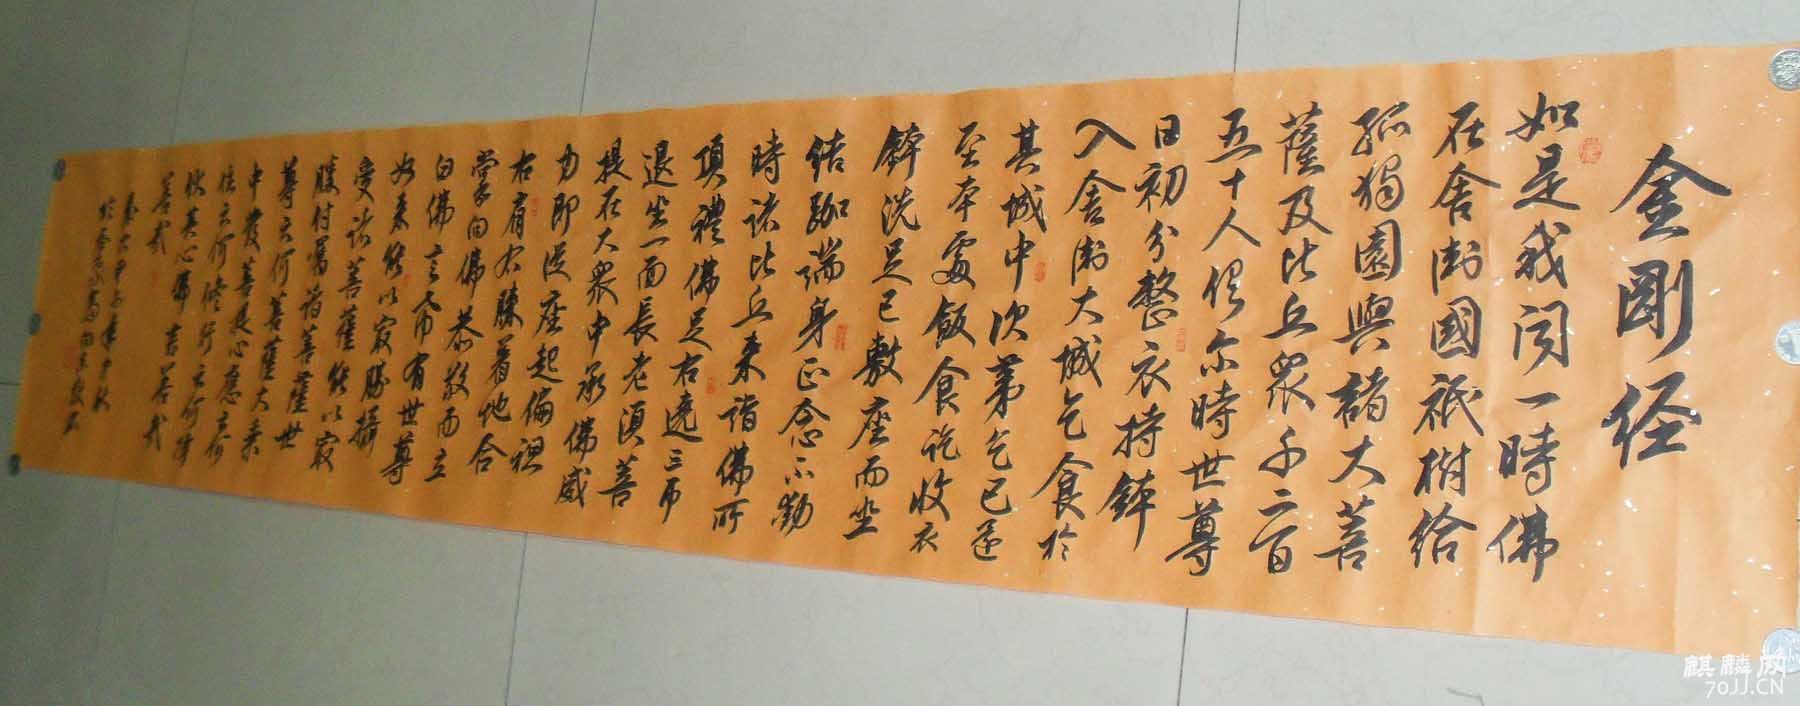 金剛経
如是我聞一時佛
在舍衛國祇樹給
孤獨園與諸大菩
薩及比丘眾千二百
五十人俱尓時世尊
日初分整衣持鉢
入舍衛大城乞食於
其城中次第乞已還
至本處飯食訖收衣
鉢洗足已敷座而坐
結跏端身正念不動
時諸比丘来詣佛所
頂禮佛足右遶三帀
退坐一面長老湏菩
提在大眾中承佛威
力即從座起偏袒
右肩右膝着地合
掌向佛恭敬而立
白佛言希有世尊
如来能以最勝攝
受諸菩薩能以最
勝付囑諸菩薩世
尊云何菩薩大乘
中發菩提心應云何
住云何修行云何降
伏其心佛言善哉
善哉
麒麟网
70JJ.CN